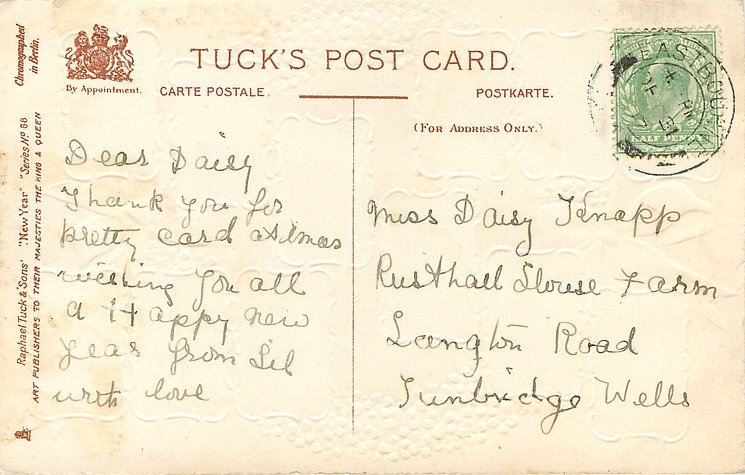 TUCK'S POST CARD.
By Appointment.
CARTE POSTALE.
POSTKARTE.
(FOR ADDRESS ONLY.)
Chromographed
in Berlin.
Raphael Tuck & Sons' "New Year" "Series No 88
ART PUBLISHERS TO THEIR MAJESTIES THE KING & QUEEN
EASTBOURNE
HALF PENNY
Dear Daisy
Thank you for
pretty card at Xmas
wishing you all
a Happy new
year from Lil
with love
Miss Daisy Knapp
Rusthall House Farm
Langton Road
Tunbridge Wells